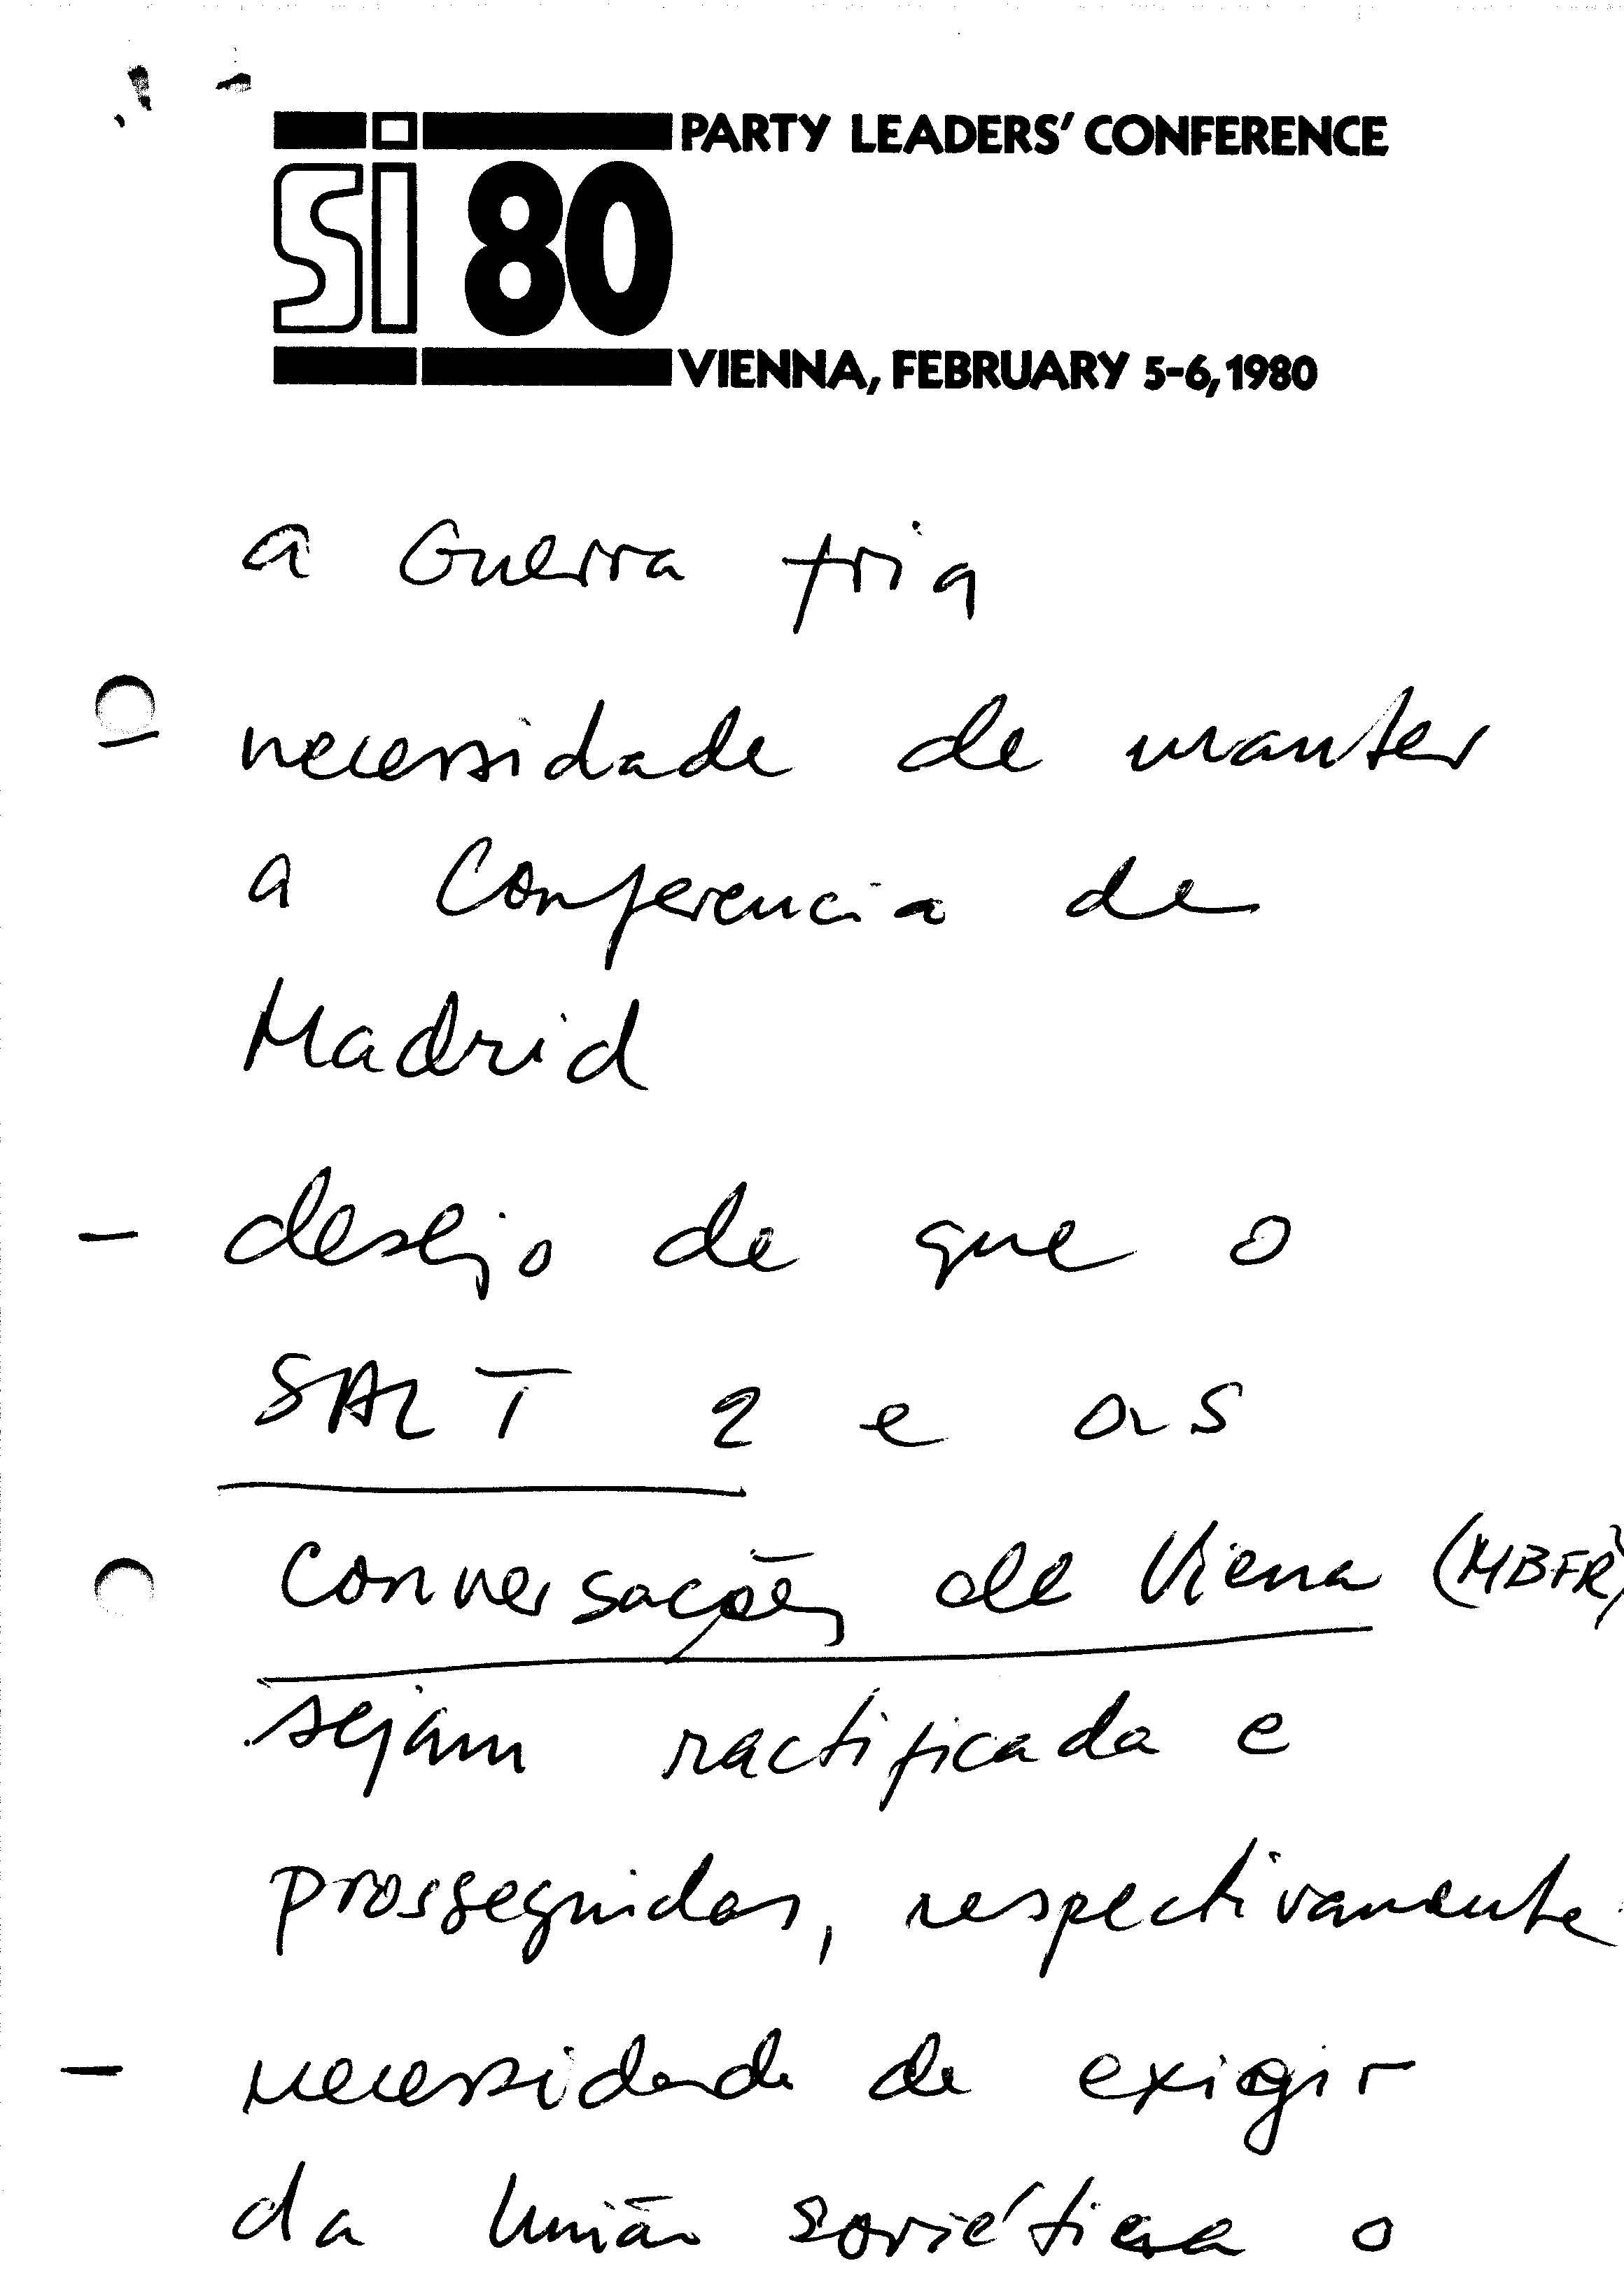 PARTY LEADERS' CONFERENCE
SI 80
VIENNA, FEBRUARY 5-6, 1980
a Guerra fria
- necessidade de manter
a Conferencia de
Madrid
- desejo de que o
SALT 2 e as
conversações de Viena (MBFR)
sejam ractificada e
prosseguidas, respectivamente
- necessidade de exigir
da União soviética o